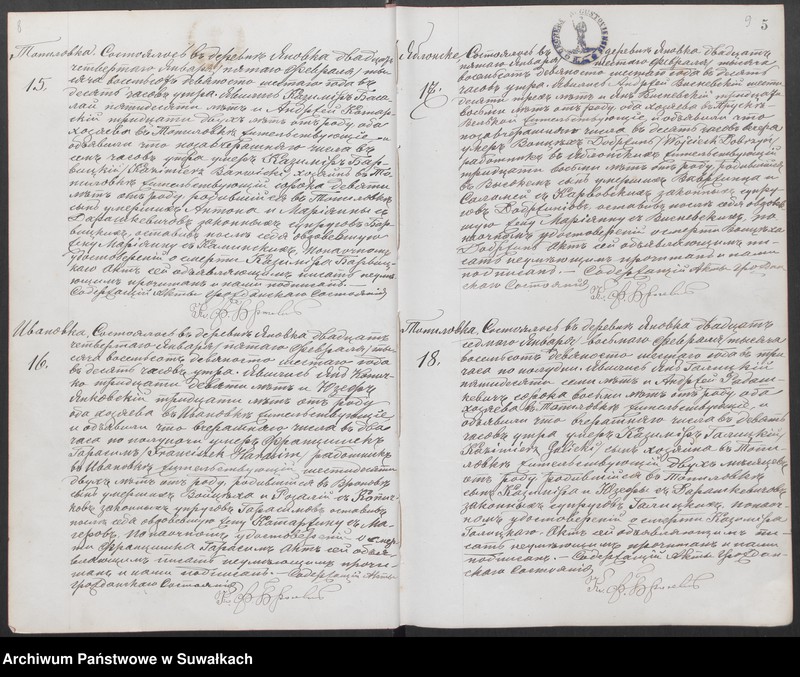 8
Топиловка. Состоялось въ деревнѣ Яновка двадцать
15. четвертаго Января /пятаго Февраля/ ты-
сяча восемьсотъ девяносто шестаго года въ
десять часовъ утра. Явились Казиміръ
лай пятидесяти лѣтъ и Андрей
скій тридцати двухъ лѣтъ отъ роду оба
хозяева въ Топиловкѣ жительствующіе и
объявили что позавчерашняго числа въ
семь часовъ утра умеръ Казиміръ Бар-
вицкій /Kazimierz Barwicki/ хозяинъ въ То-
пиловкѣ жительствующій сорока девяти
лѣтъ отъ роду родившійся въ Топиловкѣ
сынъ умершихъ Антона и Маріанны съ
законныхъ супруговъ Бар-
вицкихъ, оставивъ послѣ себя овдовѣвшую
жену Маріянну съ Калинскихъ. По наочномъ
удостовѣреніи о смерти Казиміра Барвиц-
каго Актъ сей объявляющимъ писать неумѣ-
ющимъ прочитанъ и нами подписанъ. —
Содержащій Акты Гражданскаго Состоянія
Ивановка. Состоялось въ деревнѣ Яновка двадцать
16. четвертаго Января /пятаго Февраля/ ты-
сяча восемьсотъ девяносто шестаго года
въ десять часовъ утра. Явились Янъ
но тридцати девяти лѣтъ и Юзефъ
Янковскій тридцати лѣтъ отъ роду
оба хозяева въ Ивановкѣ жительствующіе
и объявили что вчерашняго числа въ два
часа по полуночи умеръ Францишекъ
Гарасимъ /Franciszek Harasim/ работникъ
въ Ивановкѣ жительствующій шестидесяти
двухъ лѣтъ отъ роду, родившійся въ
сынъ умершихъ Войцѣха и Розаліи съ
ковъ законныхъ супруговъ Гарасимовъ оставивъ
послѣ себя овдовѣвшую жену Катаржину съ Ма-
геровъ. По наочномъ удостовѣреніи о смер-
ти Францишка Гарасимъ Актъ сей объяв-
ляющимъ писать неумѣющимъ прочи-
танъ и нами подписанъ. — Содержащій Акты
Гражданскаго Состоянія
9 5
Яблонске. Состоялось въ деревнѣ Яновка двадцать
17. пятаго Января /шестаго Февраля/ тысяча
восемьсотъ девяносто шестаго года въ десять
часовъ утра. Явились Андрей Висневскій шести-
десяти трехъ лѣтъ и Янъ Висневскій тридцати
восьми лѣтъ отъ роду хозяева въ
жительствующіе, и объявили что
позавчерашняго числа въ десять часовъ вечера
умеръ Войцѣхъ /Wojciech
работникъ въ Яблонскихъ жительствующій
тридцати восьми лѣтъ отъ роду родившійся
въ Высокемъ сынъ умершихъ Вавржинца и
Саломеи съ законныхъ супру-
говъ оставивъ послѣ себя овдовѣв-
шую жену Маріянну съ Висневскихъ. По
наочномъ удостовѣреніи о смерти Войцѣха
Актъ сей объявляющимъ пи-
сать неумѣющимъ прочитанъ и нами
подписанъ. — Содержащій Акты Граждан-
скаго Состоянія
Топиловка. Состоялось въ деревнѣ Яновка двадцать
18. седьмаго Января /восьмаго Февраля/ тысяча
восемьсотъ девяносто шестаго года въ три
часа по полудни. Явились Янъ Галицкій
пятидесяти семи лѣтъ и Андрей
кевичъ сорока восьми лѣтъ отъ роду оба
хозяева въ Топиловкѣ жительствующіе и
объявили что вчерашняго числа въ девять
часовъ утра умеръ Казиміръ Галицкій/
Kazimierz Galicki/ сынъ хозяина въ Топи-
ловкѣ жительствующій двухъ мѣсяцевъ
отъ роду родившійся въ Топиловкѣ
сынъ Казиміра и Юзефы съ
законныхъ супруговъ Галицкихъ. По наоч-
номъ удостовѣреніи о смерти Казиміра
Галицкаго Актъ сей объявляющимъ пи-
сать неумѣющимъ прочитанъ и нами
подписанъ. — Содержащій Акты Граждан-
скаго Состоянія
Archiwum Państwowe w Suwałkach